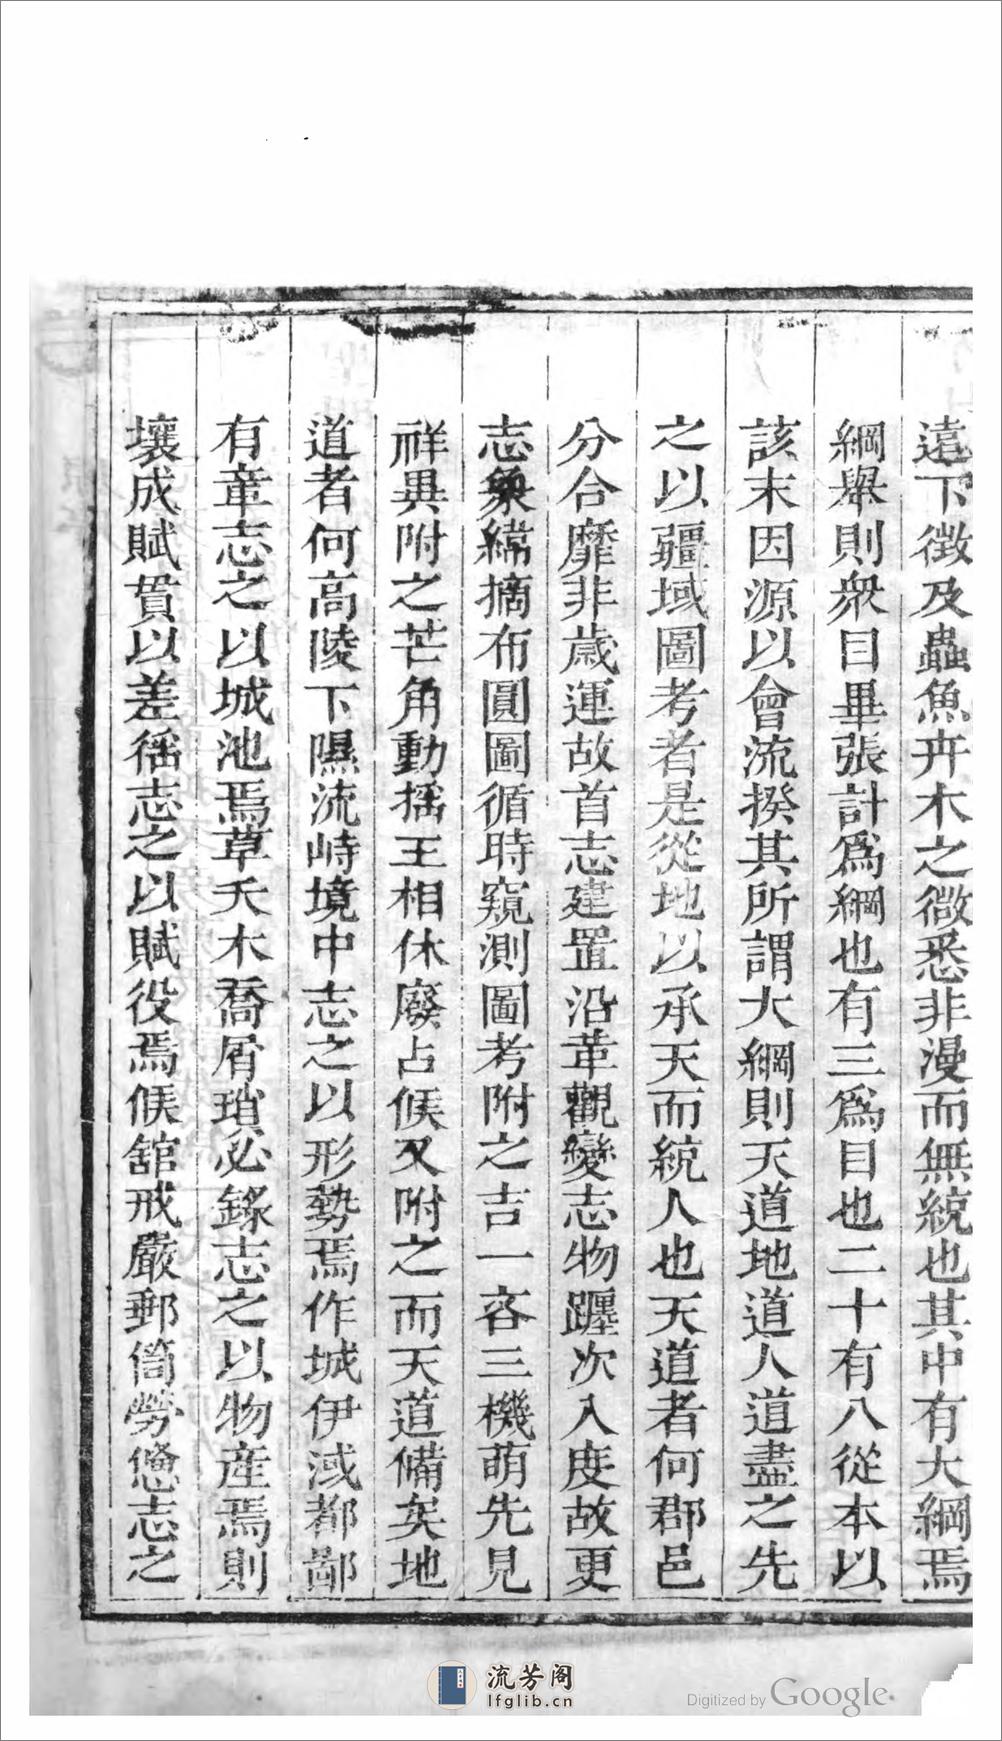 遠下徵及蟲魚卉木之微悉非漫而無統也其中有大綱焉
綱舉則衆目畢張計爲綱也有三爲目也二十有八從本以
該末因源以會流揆其所謂大綱則天道地道人道盡之先
之以疆域圖考者是從地以承天而統人也天道者何郡邑
分合靡非歲運故首志建置沿革觀變志物躔次入度故更
志象緯摘布圓圖循時窺測圖考附之吉一咨三機萌先見
祥異附之芒角動揺王相休廢占候又附之而天道備矣地
道者何高陵下隰流峙境中志之以形勢焉作城伊淢都鄙
有章志之以城池焉草夭木喬屑瑣必錄志之以物産焉則
壤成賦貰以差徭志之以賦役焉候舘戒嚴郵筒勞憊志之
流芳阁
lfglib.cn
Digitized by Google